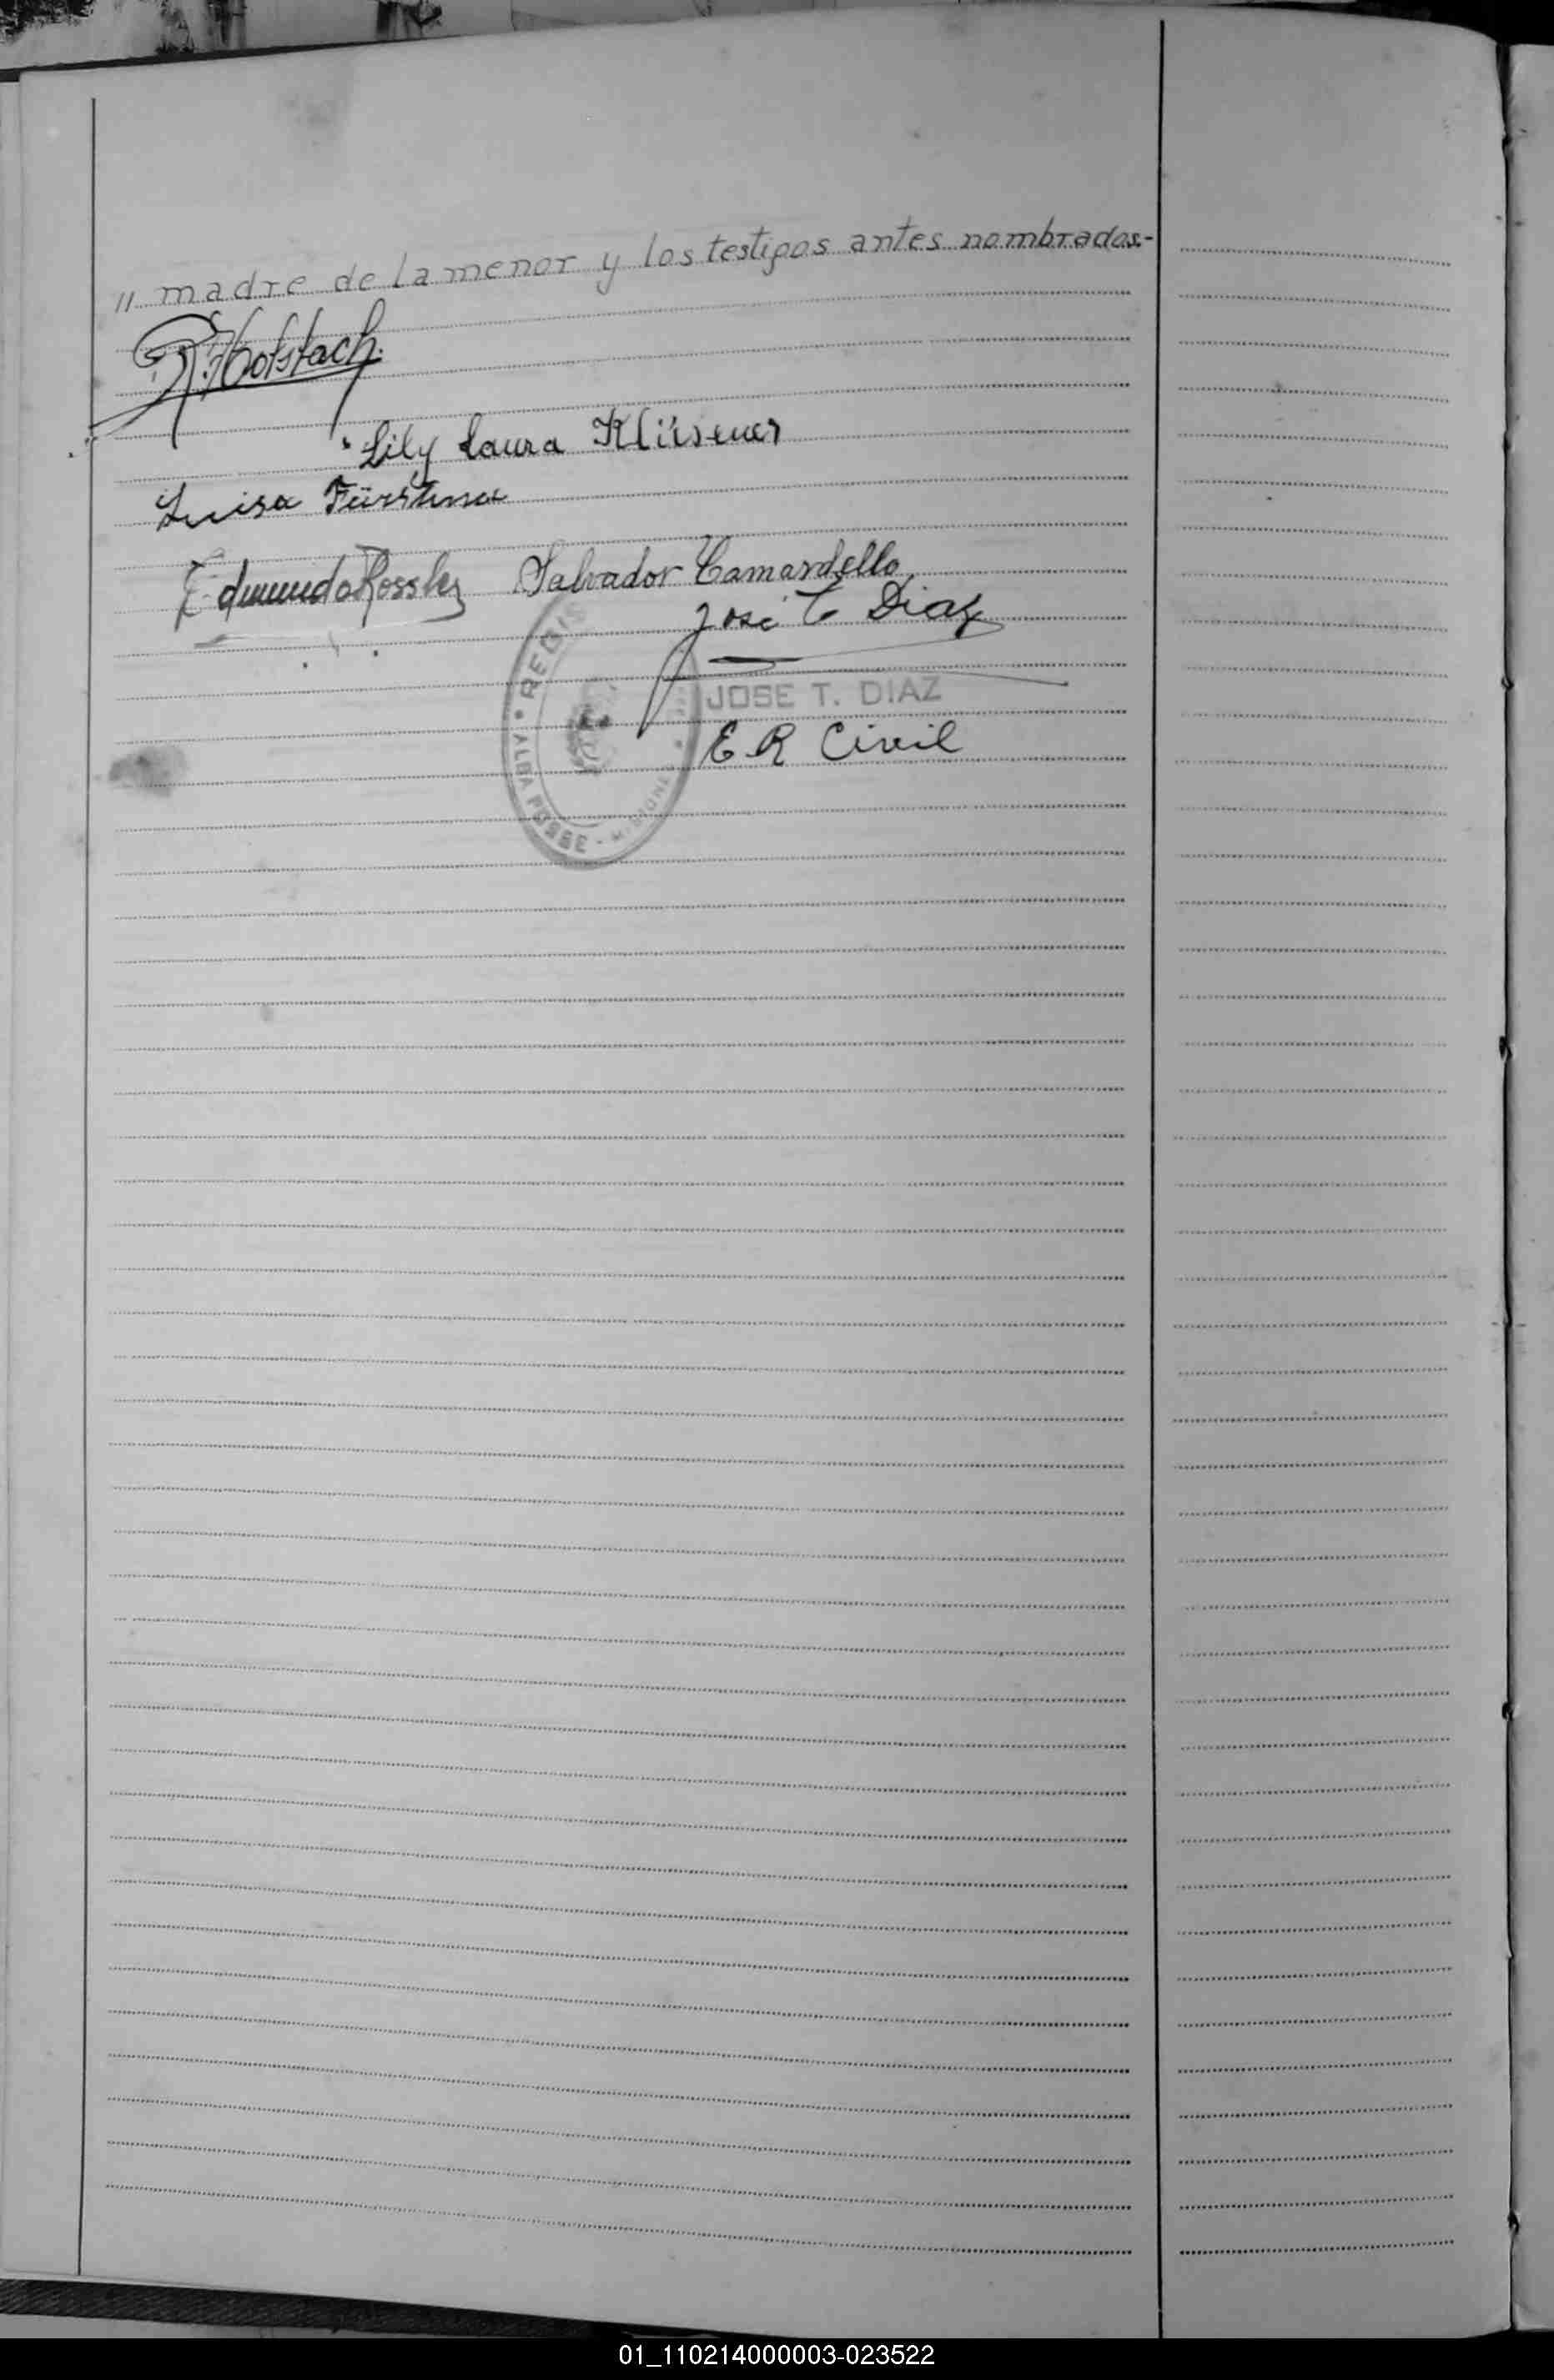 " madre de la menor y los testigos antes nombrados.-
R. Hofstach.
Lily Laura Klüsener
Luisa Fürstenau
Edmundo Rossler Salvador Camardello
José T Diaz
REGIS
JOSE T. DIAZ
E R Civil
ALBA POSSE - MISIONES
01_110214000003-023522